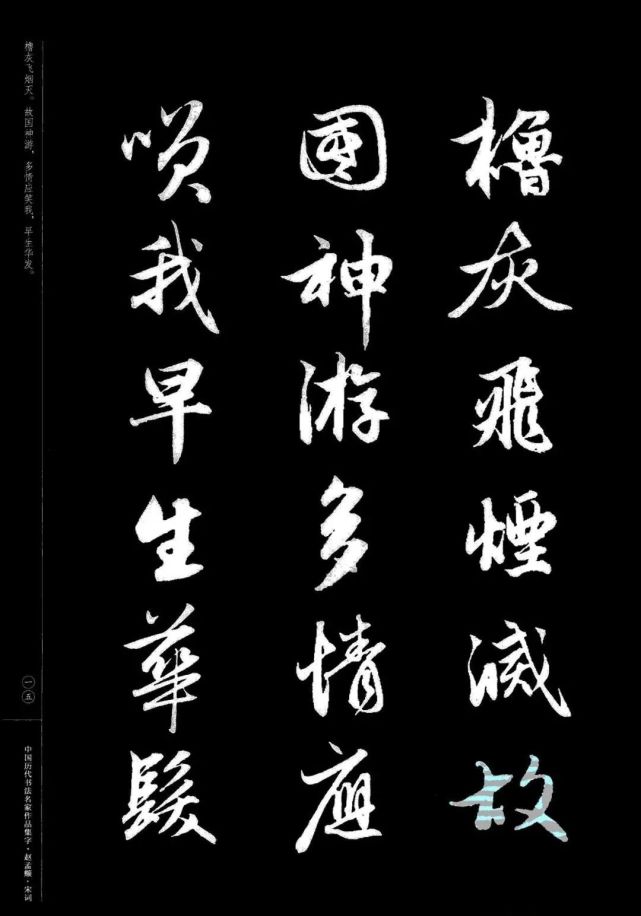 櫓灰飛煙滅故
國神游多情應
咲我早生華髮
橹灰飞烟灭。故国神游，多情应笑我，早生华发。
一五
中国历代书法名家作品集字·赵孟頫·宋词